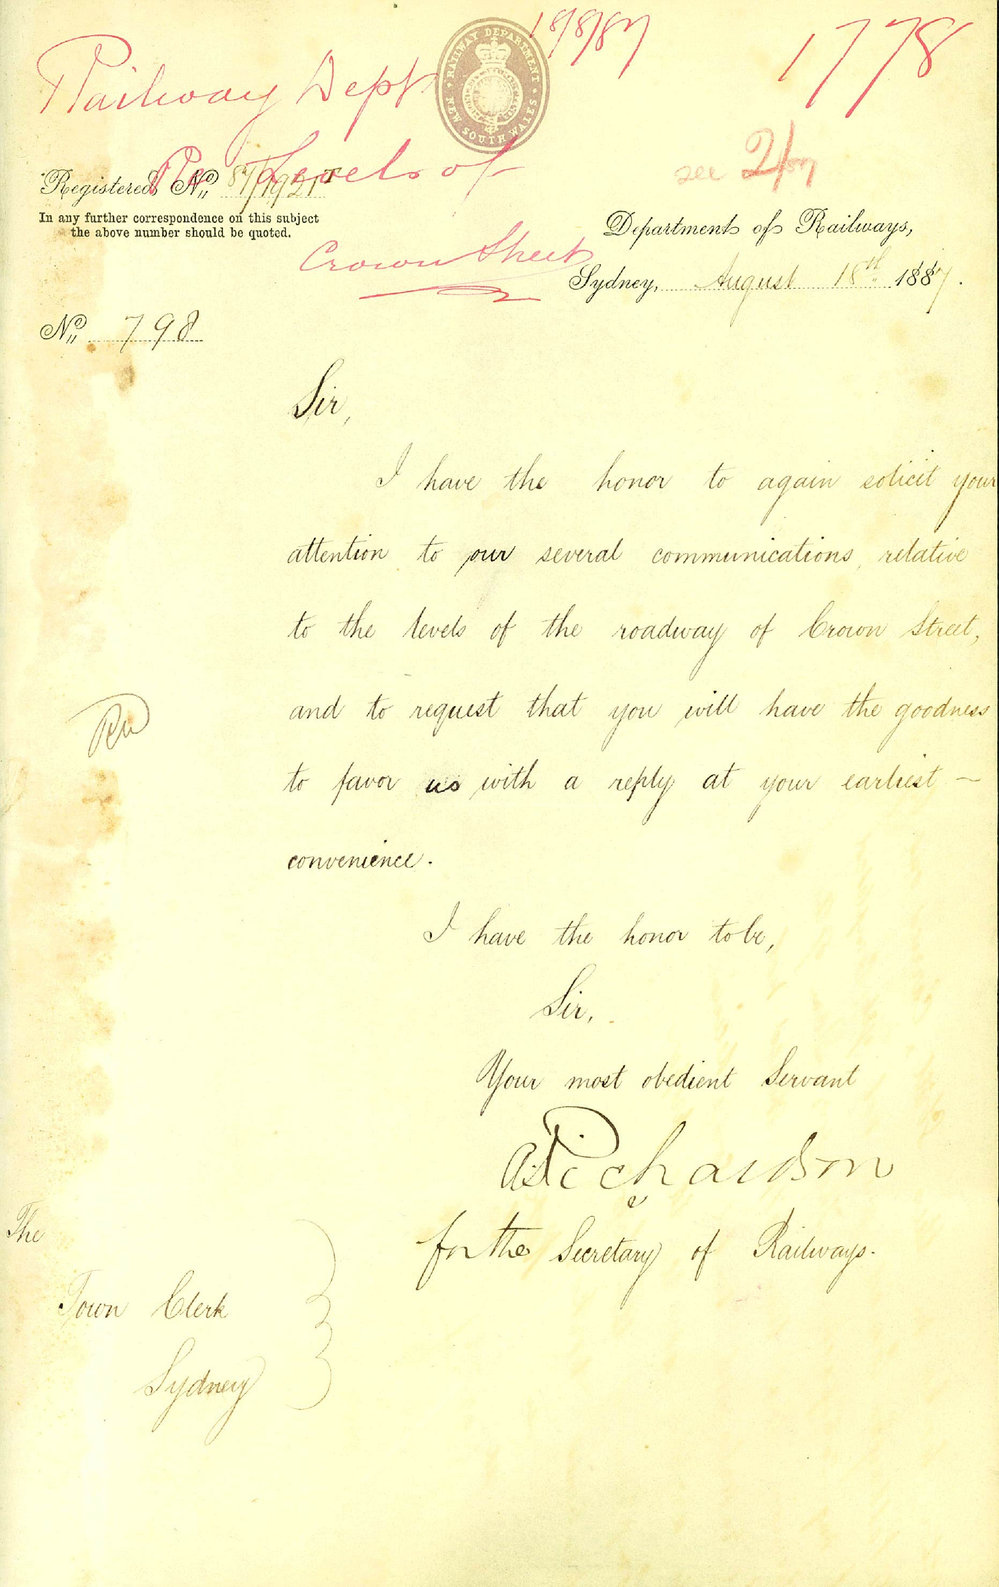 18/8/87
1778
Railway Dept
RAILWAY DEPARTMENT
NEW SOUTH WALES
Re Levels of
Crown Street
see 2/87
Registered No. 87/1921
In any further correspondence on this subject
the above number should be quoted.
Department of Railways,
Sydney, August 18th 1887.
No. 798
Sir,
I have the honor to again solicit your
attention to our several communications, relative
to the levels of the roadway of Crown Street,
and to request that you will have the goodness
to favor us with a reply at your earliest —
convenience.
I have the honor to be,
Sir,
Your most obedient Servant
Richardson
for the Secretary of Railways.
The
Town Clerk
Sydney